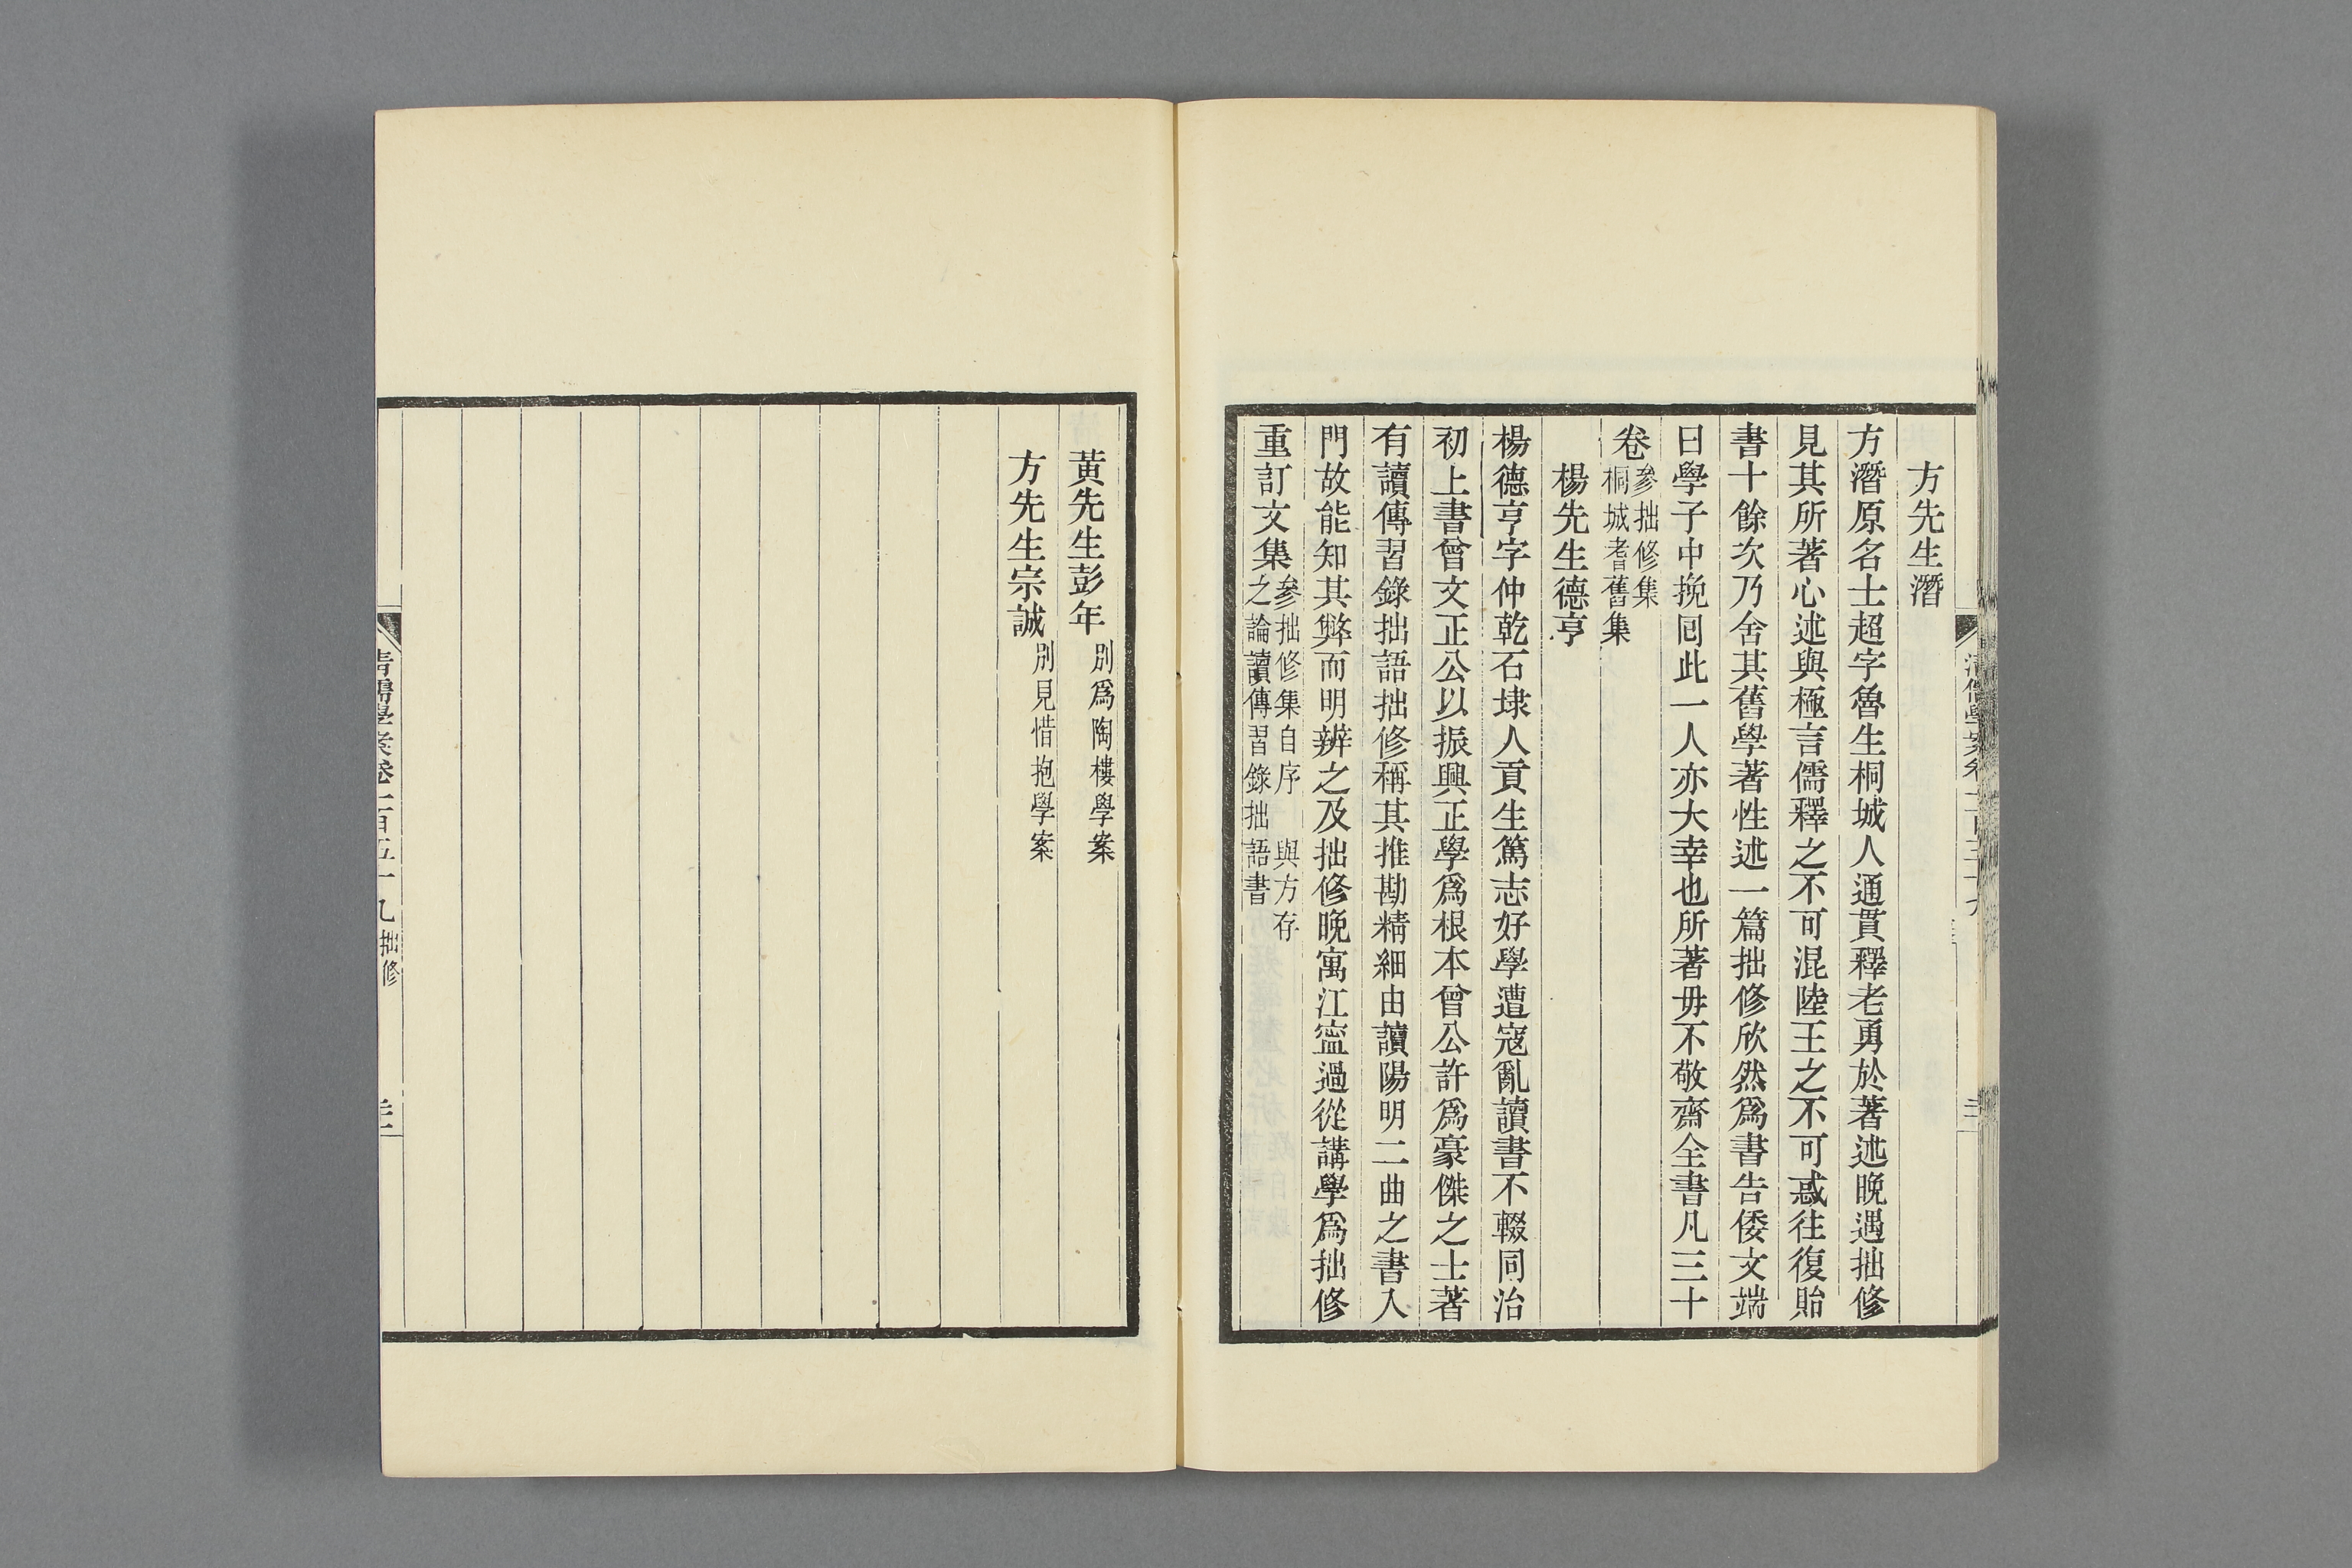 方先生潛
方潛原名士超字魯生桐城人通貫釋老勇於著述晚遇拙修
見其所著心述與極言儒釋之不可混陸王之不可惑往復貽
書十餘次乃舍其舊學著性述一篇拙修欣然爲書告倭文端
曰學子中挽囘此一人亦大幸也所著毋不敬齋全書凡三十
卷參拙修集
桐城耆舊集
楊先生德亨
楊德亨字仲乾石埭人貢生篤志好學遭寇亂讀書不輟同治
初上書曾文正公以振興正學爲根本曾公許爲豪傑之士著
有讀傳習錄拙語拙修稱其推勘精細由讀陽明二曲之書入
門故能知其弊而明辨之及拙修晚寓江寍過從講學爲拙修
重訂文集參拙修集自序 與方存
之論讀傳習錄拙語書
黃先生彭年別爲陶樓學案
方先生宗誠別見惜抱學案
清儒學案卷一百五十九 拙修